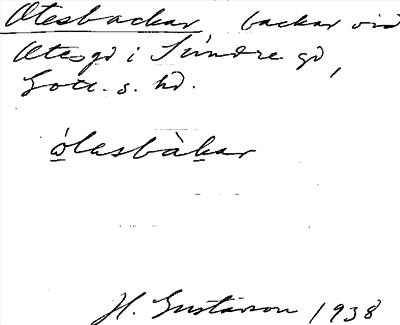 Otesbackar, backar vid
Otes gd i Sundre sn,
Gotl. s. hd.
ó̲tasbàk̲ar
H. Gustavson 1938